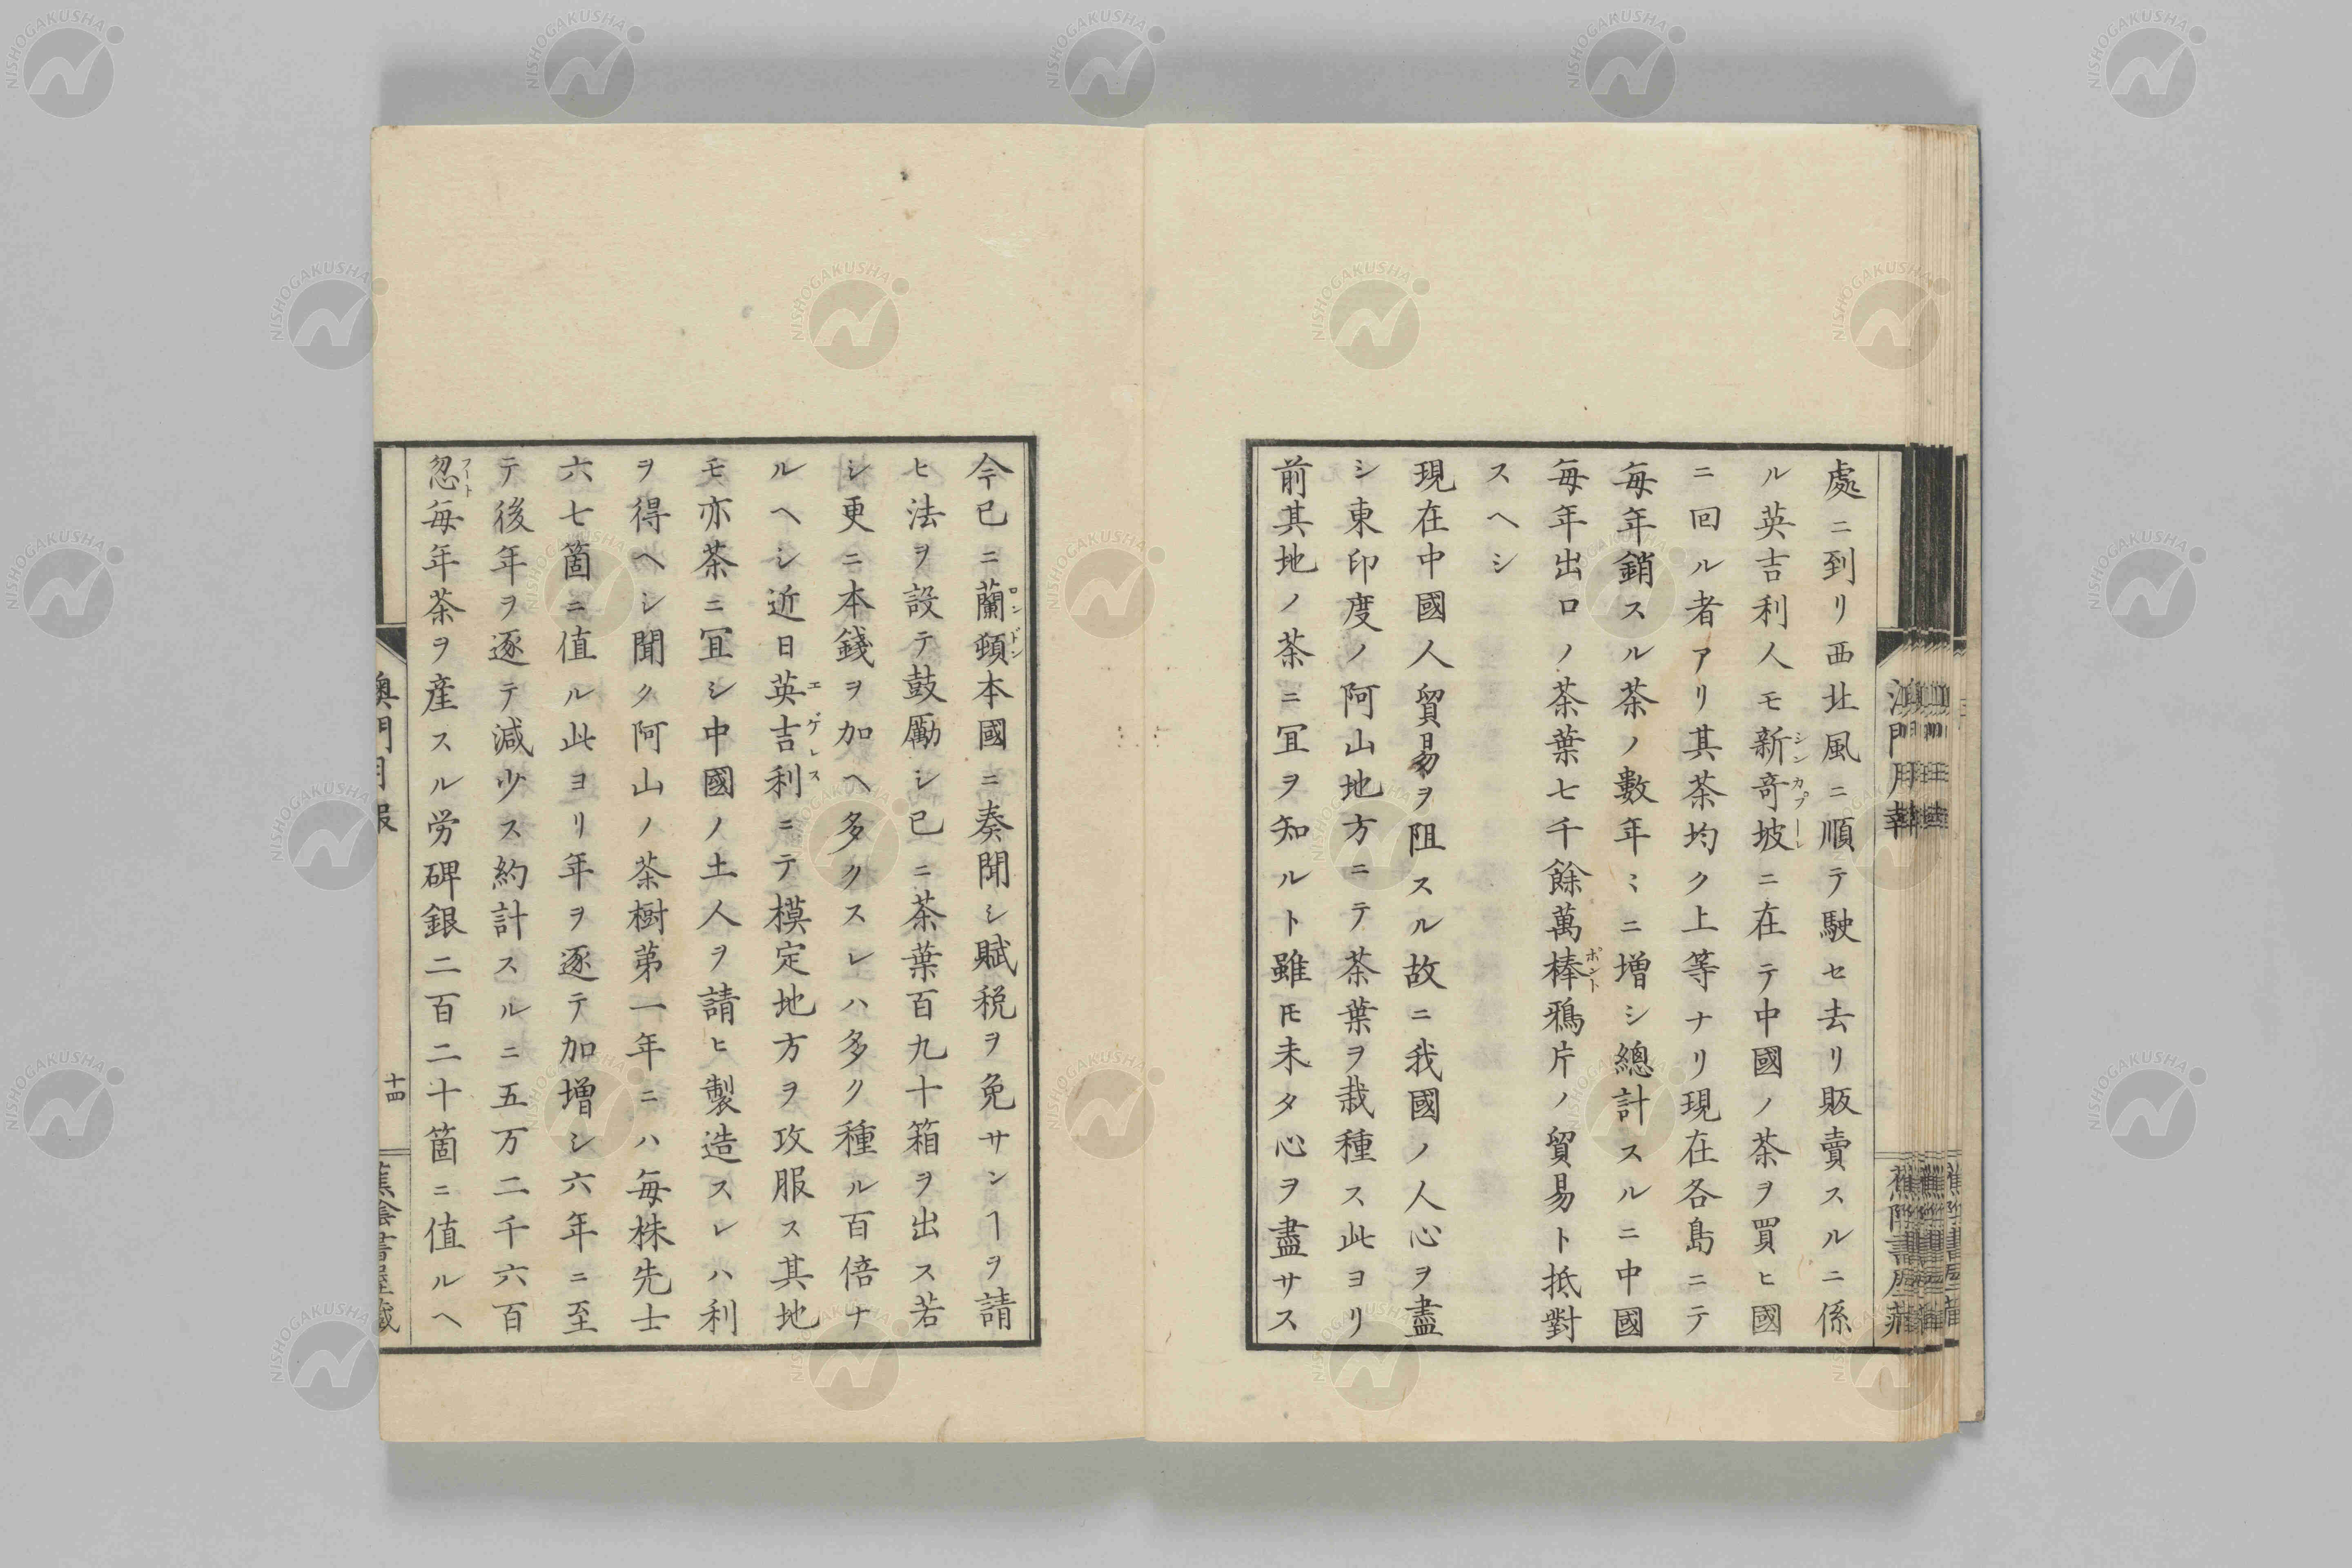 處ニ到リ西北風ニ順テ駛セ去リ販賣スルニ係
ル英吉利人モ新奇坡ニ在テ中國ノ茶ヲ買ヒ國
シンカプーレ
ニ回ル者アリ其茶均ク上等ナリ現在各島ニテ
每年銷スル茶ノ數年〻ニ增シ總計スルニ中國
每年出口ノ茶葉七千餘萬棒鴉片ノ貿易ト抵對
ポント
スヘシ
現在中國人貿易ヲ阻スル故ニ我國ノ人心ヲ盡
シ東印度ノ阿山地方ニテ茶葉ヲ栽種ス此ヨリ
前其地ノ茶ニ冝ヲ知ルト雖𪜈未タ心ヲ盡サス
今已ニ蘭頓本國ニ奏聞シ賦税ヲ免サンヿヲ請
ロンドン
ヒ法ヲ設テ鼓勵シ已ニ茶葉百九十箱ヲ出ス若
シ更ニ本錢ヲ加ヘ多クスレハ多ク種ル百倍ナ
ルヘシ近日英吉利ニテ模定地方ヲ攻服ス其地
エゲレス
モ亦茶ニ冝シ中國ノ土人ヲ請ヒ製造スレハ利
ヲ得ヘシ聞ク阿山ノ茶樹第一年ニハ每株先士
六七箇ニ値ル此ヨリ年ヲ逐テ加增シ六年ニ至
テ後年ヲ逐テ減少ス約計スルニ五万二千六百
忽每年茶ヲ産スル労碑銀二百二十箇ニ値ルヘ
フート
澳門月報
十四
蕉陰書屋藏
NISHOGAKUSHA